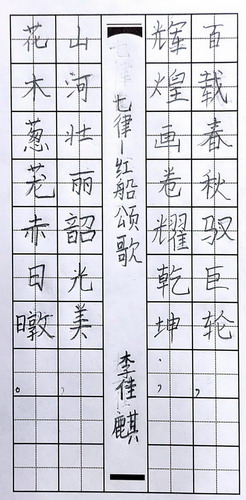 百载春秋驭巨轮，
辉煌画卷耀乾坤；
七律-红船頌歌 李佳麒
山河壮丽韶光美，
花木葱茏赤日暾。